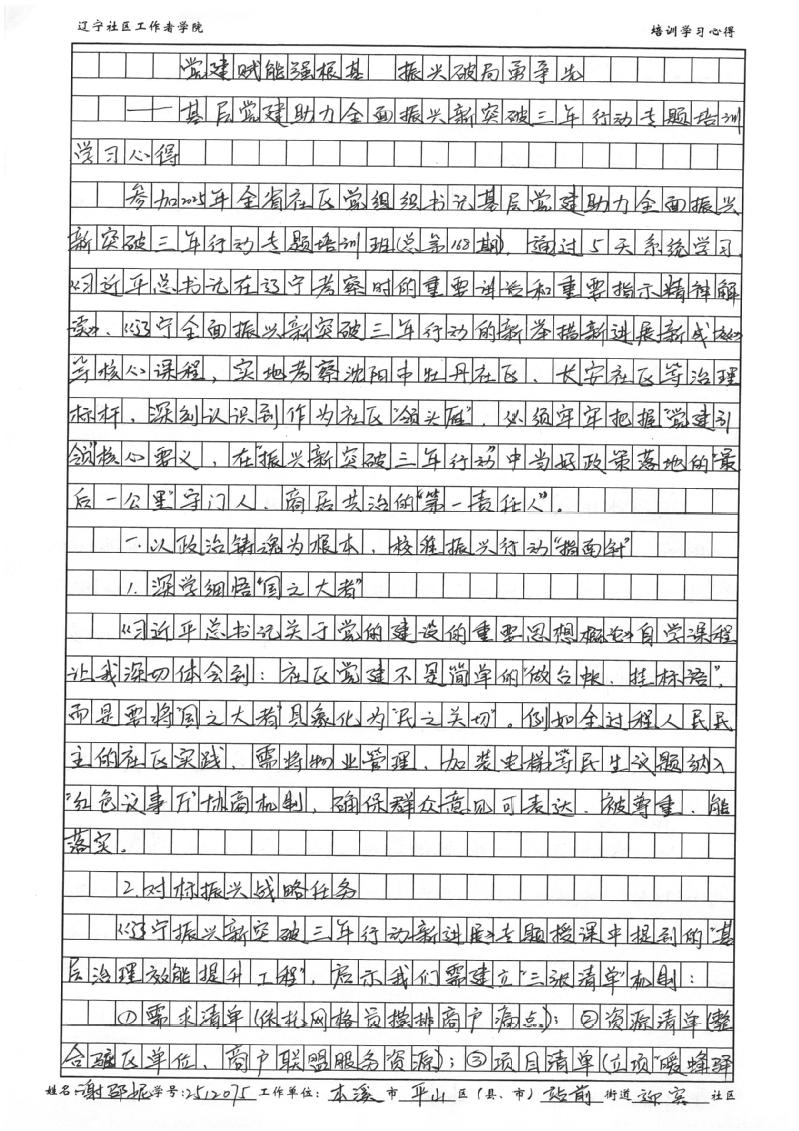 辽宁社区工作者学院 培训学习心得
党建赋能强根基 振兴破局勇争先
——基层党建助力全面振兴新突破三年行动专题培训
学习心得
参加2025年全省社区党组织书记基层党建助力全面振兴
新突破三年行动专题培训班(总第168期),通过5天系统学习,
《习近平总书记在辽宁考察时的重要讲话和重要指示精神解
读》、《辽宁全面振兴新突破三年行动的新举措新进展新成效》
等核心课程,实地考察沈阳市牡丹社区、长安社区等治理
标杆,深刻认识到作为社区"领头雁",必须牢牢把握"党建引
领"核心要义,在"振兴新突破三年行动"中当好政策落地的"最
后一公里"守门人、商居共治的"第一责任人"。
一、以政治铸魂为根本,校准振兴行动"指南针"
1.深学细悟"国之大者"
《习近平总书记关于党的建设的重要思想概论》自学课程
让我深切体会到:社区党建不是简单的"做台帐、挂标语",
而是要将"国之大者"具象化为"民之关切"。例如全过程人民民
主的社区实践,需将物业管理、加装电梯等民生议题纳入
"红色议事厅"协商机制,确保群众意见可表达、被尊重、能
落实。
2.对标振兴战略任务
《辽宁振兴新突破三年行动新进展》专题授课中提到的"基
层治理效能提升工程",启示我们需建立"三张清单"机制:
①需求清单(依托网格员摸排商户痛点);②资源清单(整
合驻区单位、商户联盟服务资源);③项目清单(立项"暖蜂驿
姓名:谢邵妮 学号:2512075 工作单位:本溪 市 平山 区(县、市) 站前 街道 迎宾 社区